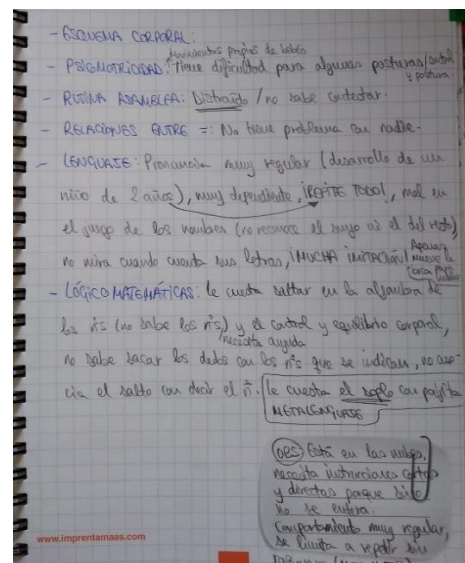 - ESQUEMA CORPORAL:
Movimientos propios de bebés
- PSICMOTRICIDAD: Tiene dificultad para algunas posturas/control y postura.
- RUTINA ASAMBLEA: Distraído / no sabe contestar.
- RELACIONES ENTRE =: No tiene problema con nadie.
- LENGUAJE: Pronunciación muy regular (desarrollo de un
niño de 2 años), muy dependiente, ¡REPITE TODO!, mal en
el juego de los nombres (no reconoce el suyo ni el del resto)
no mira cuando cuenta sus letras, ¡MUCHA IMITACIÓN! Apenas mueve la boca
- LÓGICO MATEMÁTICAS: le cuesta saltar en la alfombra de
los nºs (no sabe los nºs) y el control y equilibrio corporal,
necesita ayuda
no sabe sacar los dedos con los nºs que se indican, no aso-
cia el salto con decir el nº. le cuesta el soplo con pajita
METALENGUAJE
OBS Está en las nubes,
necesita instrucciones cortas
y directas porque sino
no se entera.
Comportamiento muy regular,
se limita a repetir sus
www.imprentamaas.com